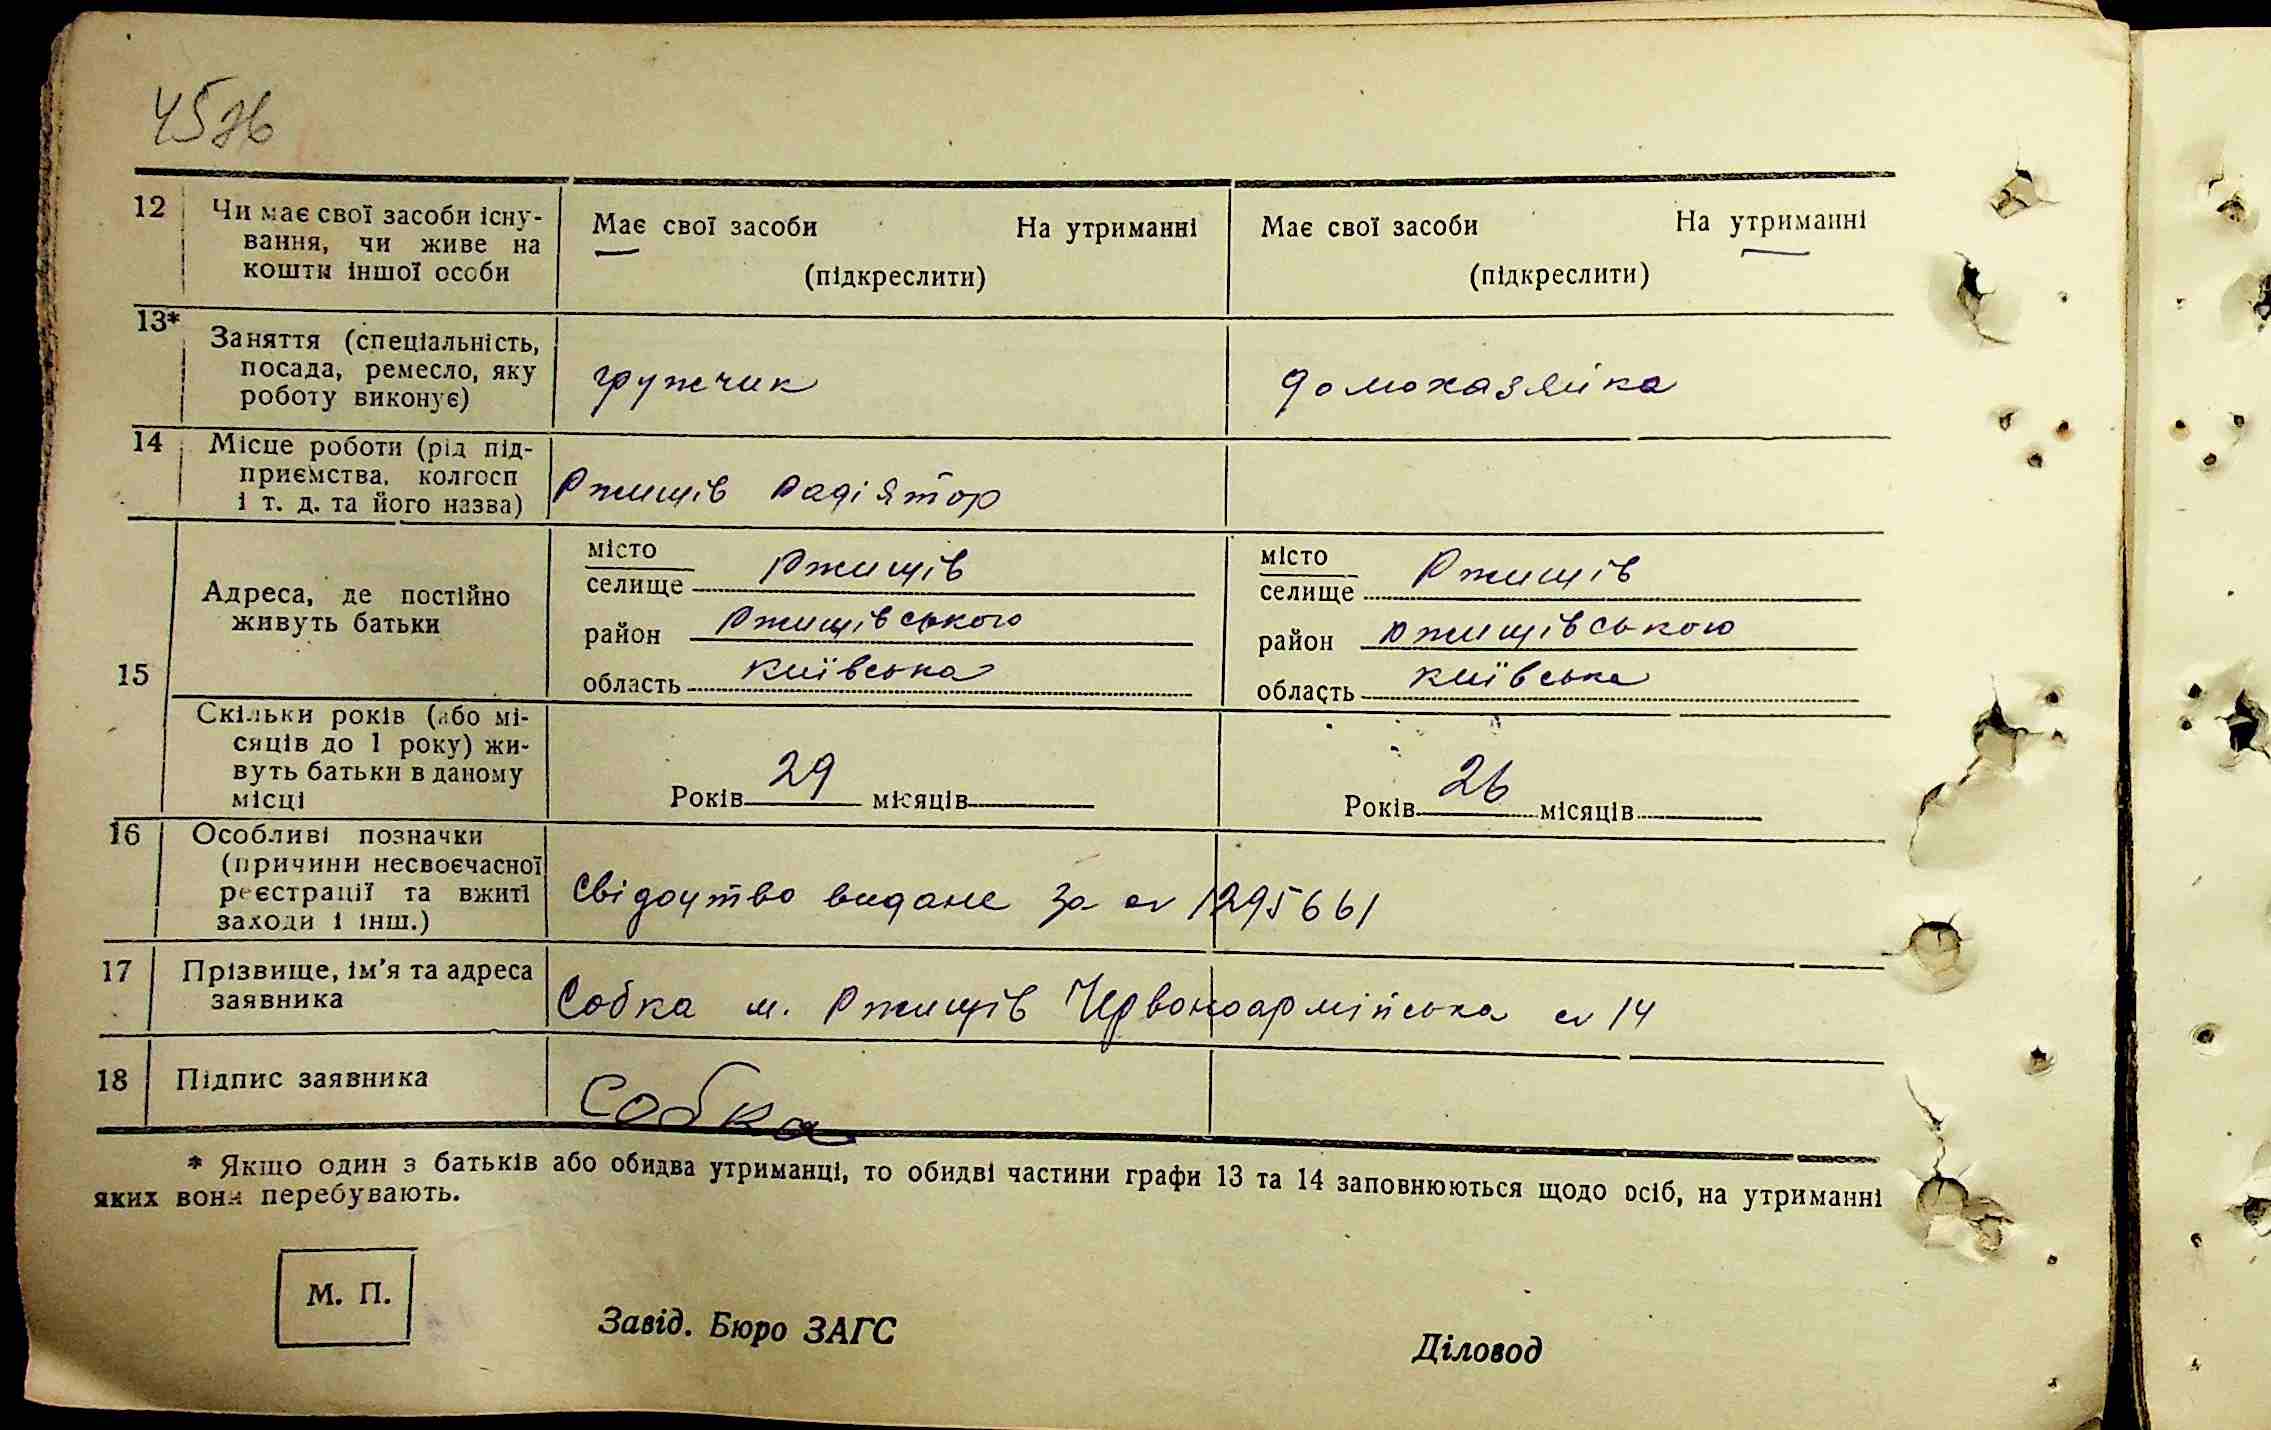 45зв
12 Чи має свої засоби існу-
вання, чи живе на
кошти іншої особи
Має свої засоби На утриманні
(підкреслити)
Має свої засоби На утриманні
(підкреслити)
13* Заняття (спеціальність,
посада, ремесло, яку
роботу виконує)
гружчик
домохазяйка
14 Місце роботи (рід під-
приємства, колгосп
і т. д. та його назва)
Ржищів Радіятор
15
Адреса, де постійно
живуть батьки
місто
селище Ржищів
район Ржищівського
область Київська
місто
селище Ржищів
район Ржищівського
область Київська
Скільки років (або мі-
сяців до 1 року) жи-
вуть батьки в даному
місці
Років 29 місяців
Років 26 місяців
16 Особливі позначки
(причини несвоєчасної
реєстрації та вжиті
заходи і інш.)
Свідоцтво видане за № 1295661
17 Прізвище, ім'я та адреса
заявника
Собка м. Ржищів Червоноармійська № 14
18 Підпис заявника
Собка
* Якщо один з батьків або обидва утриманці, то обидві частини графи 13 та 14 заповнюються щодо осіб, на утриманні
яких вони перебувають.
М. П.
Завід. Бюро ЗАГС
Діловод